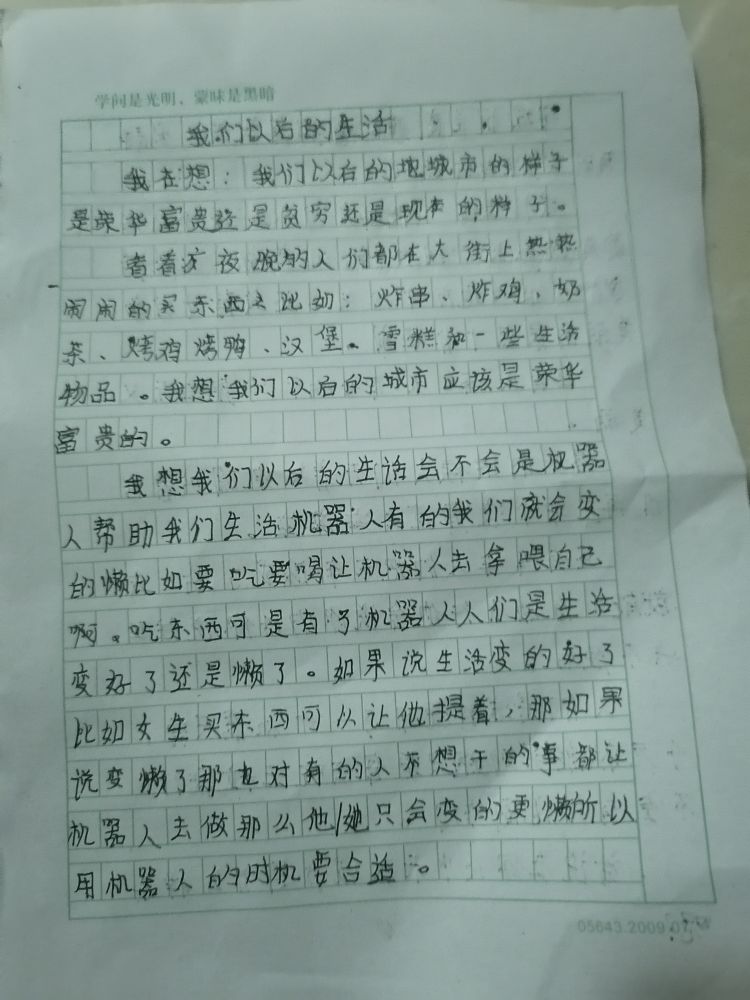 学问是光明，蒙昧是黑暗
我们以后的生活
我在想：我们以后的地城市的样子
是荣华富贵还是贫穷还是现在的种子。
看着夜晚的人们都在大街上热热
闹闹的买东西比如：炸串、炸鸡、奶
茶、烤鸡烤鸭、汉堡。雪糕和一些生活
物品。我想我们以后的城市应该是荣华
富贵的。
我想我们以后的生话会不会是机器
人帮助我们生活机器人有的我们就会变
的懒比如要吃要喝让机器人去拿喂自己
啊。吃东西可是有了机器人人们是生活
变好了还是懒了。如果说生活变的好了
比如女生买东西可以让他提着，那如果
说变懒了那也对有的人不想干的事都让
机器人去做那么他/她只会变的更懒所以
用机器人的时机要合适。
05643.2009.07